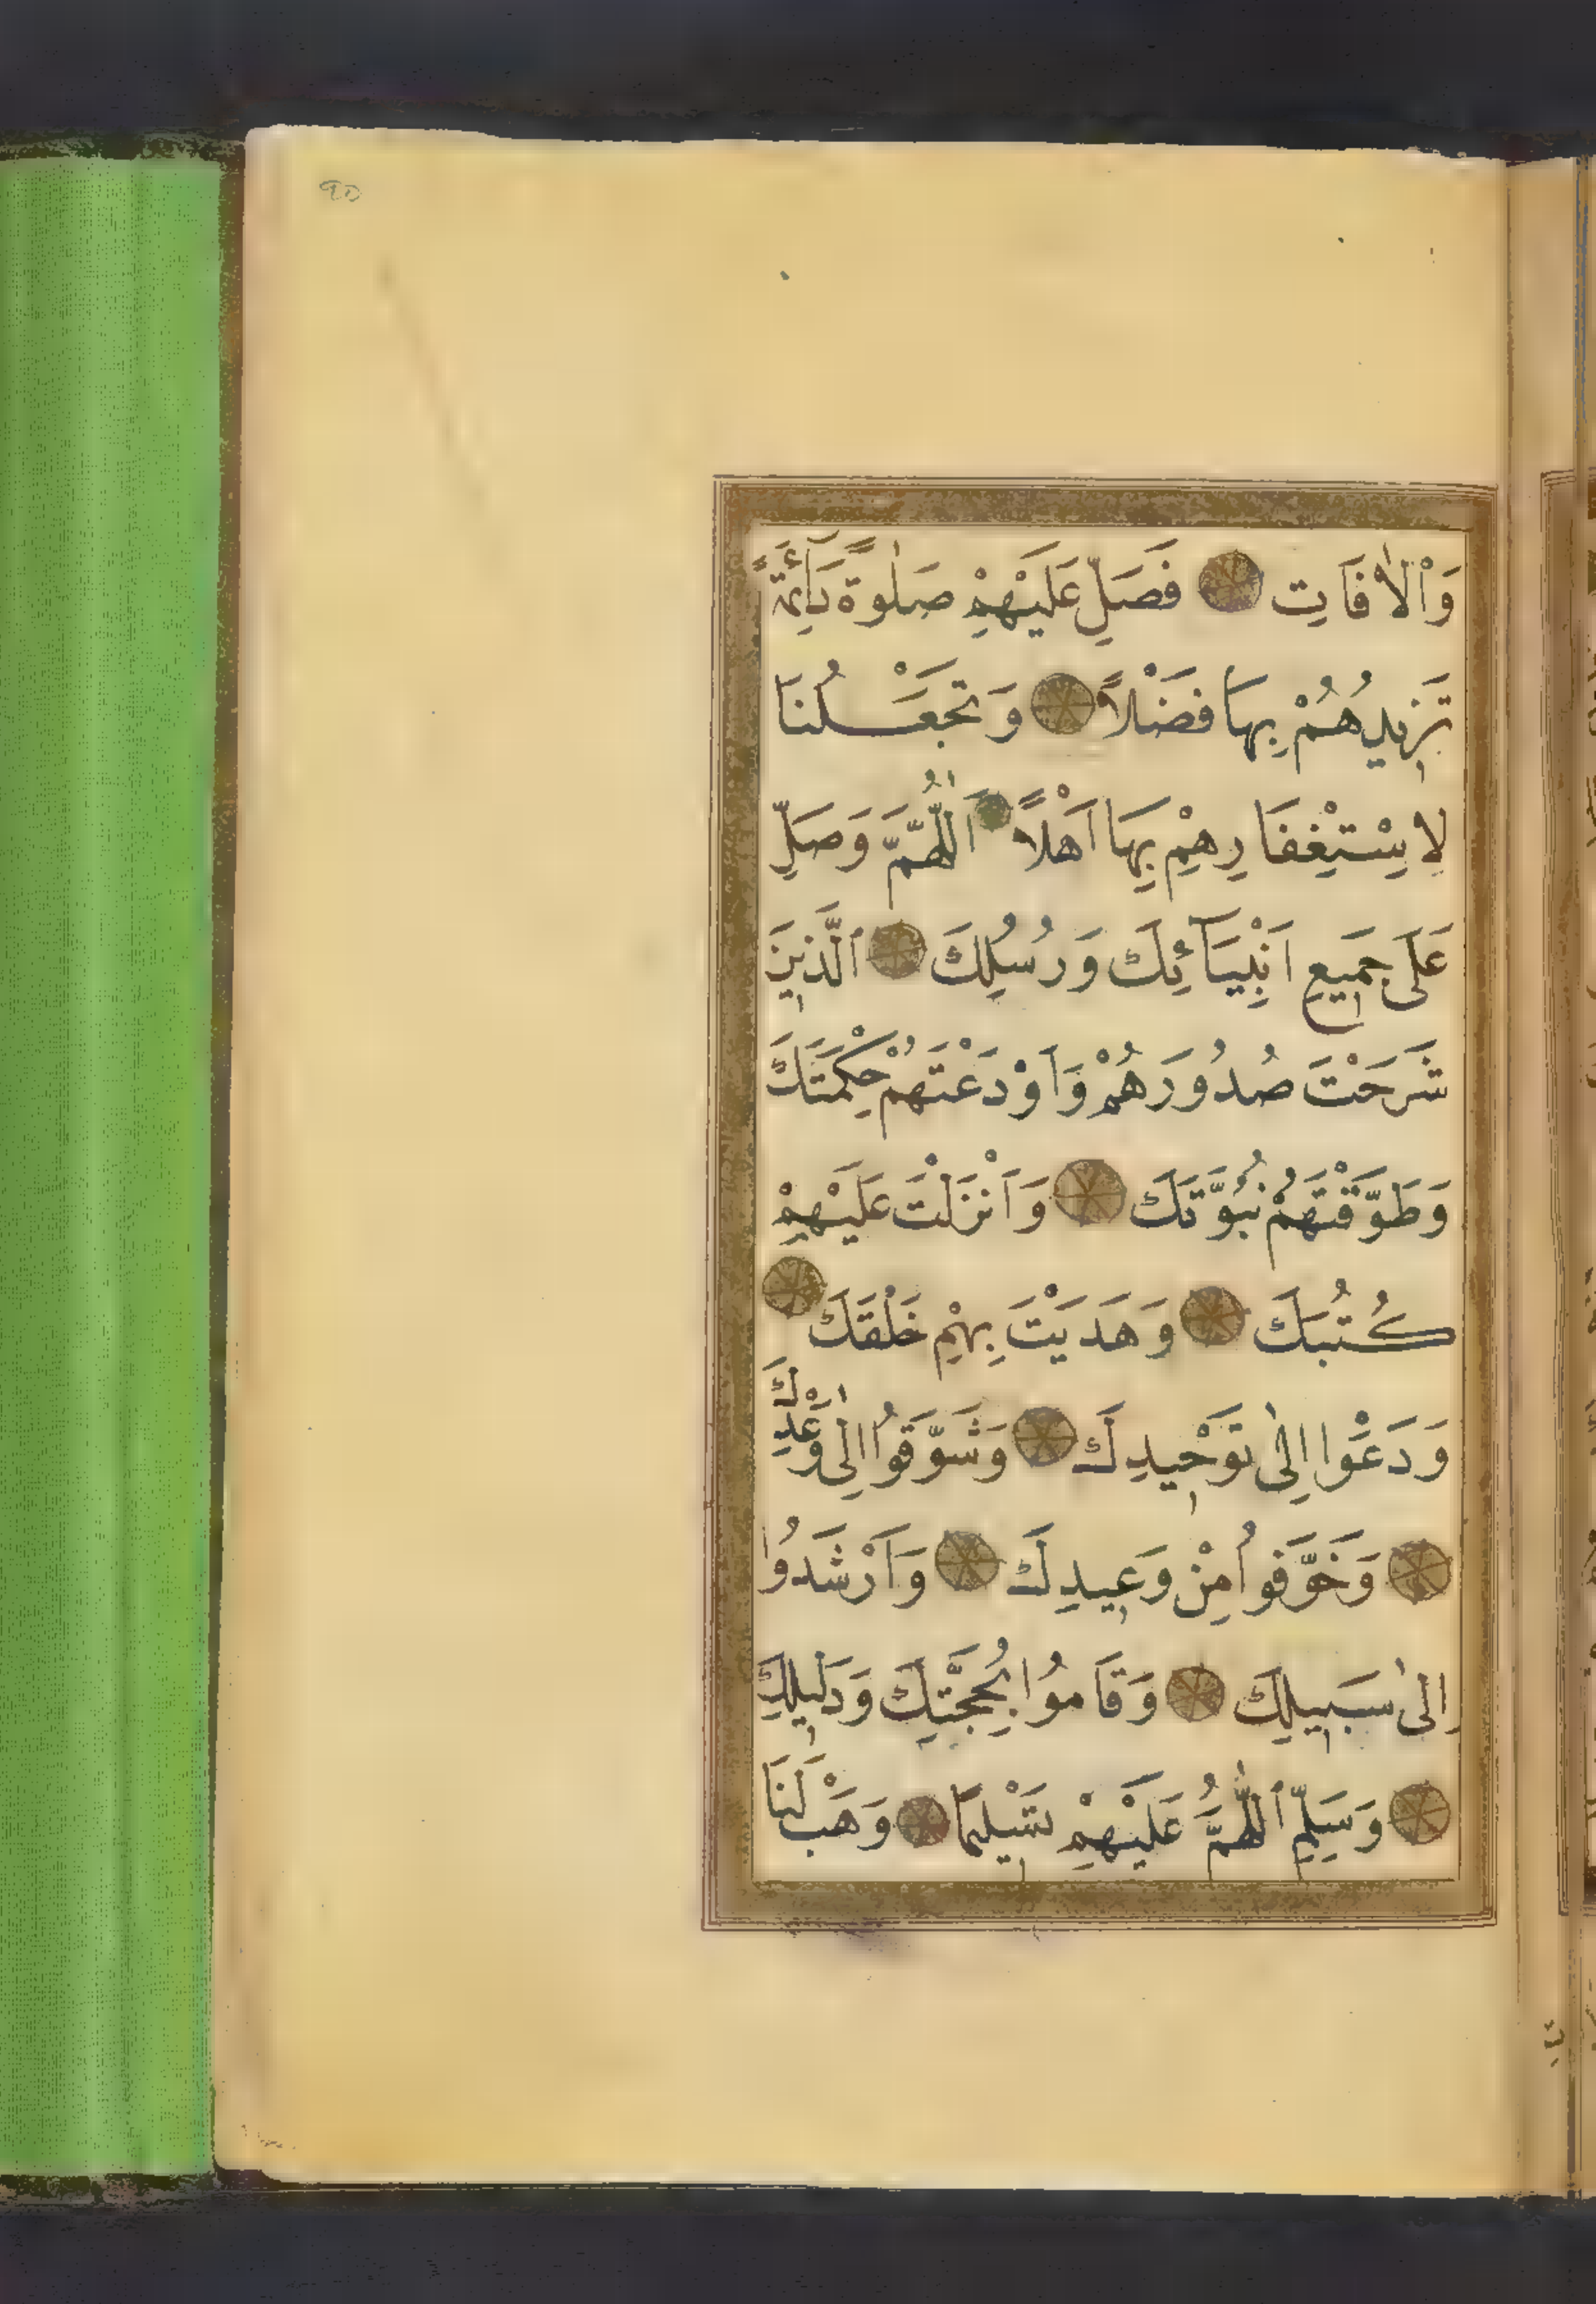 90
وَاْلاٰفَاتِ فَصَلِّ عَلَيْهِمْ صَلٰوةً دَآئِمَةً
تَزِيدُهُمْ بِهَا فَضْلاً وَتَجْعَلُنَا
لِاسْتِغْفَارِهِمْ بِهَا اَهْلاً اَللّٰهُمَّ وَصَلِّ
عَلَى جَمِيعِ اَنْبِيَآئِكَ وَرُسُلِكَ الَّذِينَ
شَرَحْتَ صُدُورَهُمْ وَاَوْدَعْتَهُمْ حِكْمَتَكَ
وَطَوَّقْتَهُمْ نُبُوَّتَكَ وَاَنْزَلْتَ عَلَيْهِمْ
كُتُبَكَ وَهَدَيْتَ بِهِمْ خَلْقَكَ
وَدَعَوْا اِلٰى تَوْحِيدِكَ وَشَوَّقُوا اِلٰى وَعْدِكَ
وَخَوَّفُوا مِنْ وَعِيدِكَ وَاَرْشَدُوا
اِلٰى سَبِيلِكَ وَقَامُوا بِحُجَّتِكَ وَدَلِيلِكَ
وَسَلِّمِ اللّٰهُمَّ عَلَيْهِمْ تَسْلِيمًا وَهَبْ لَنَا